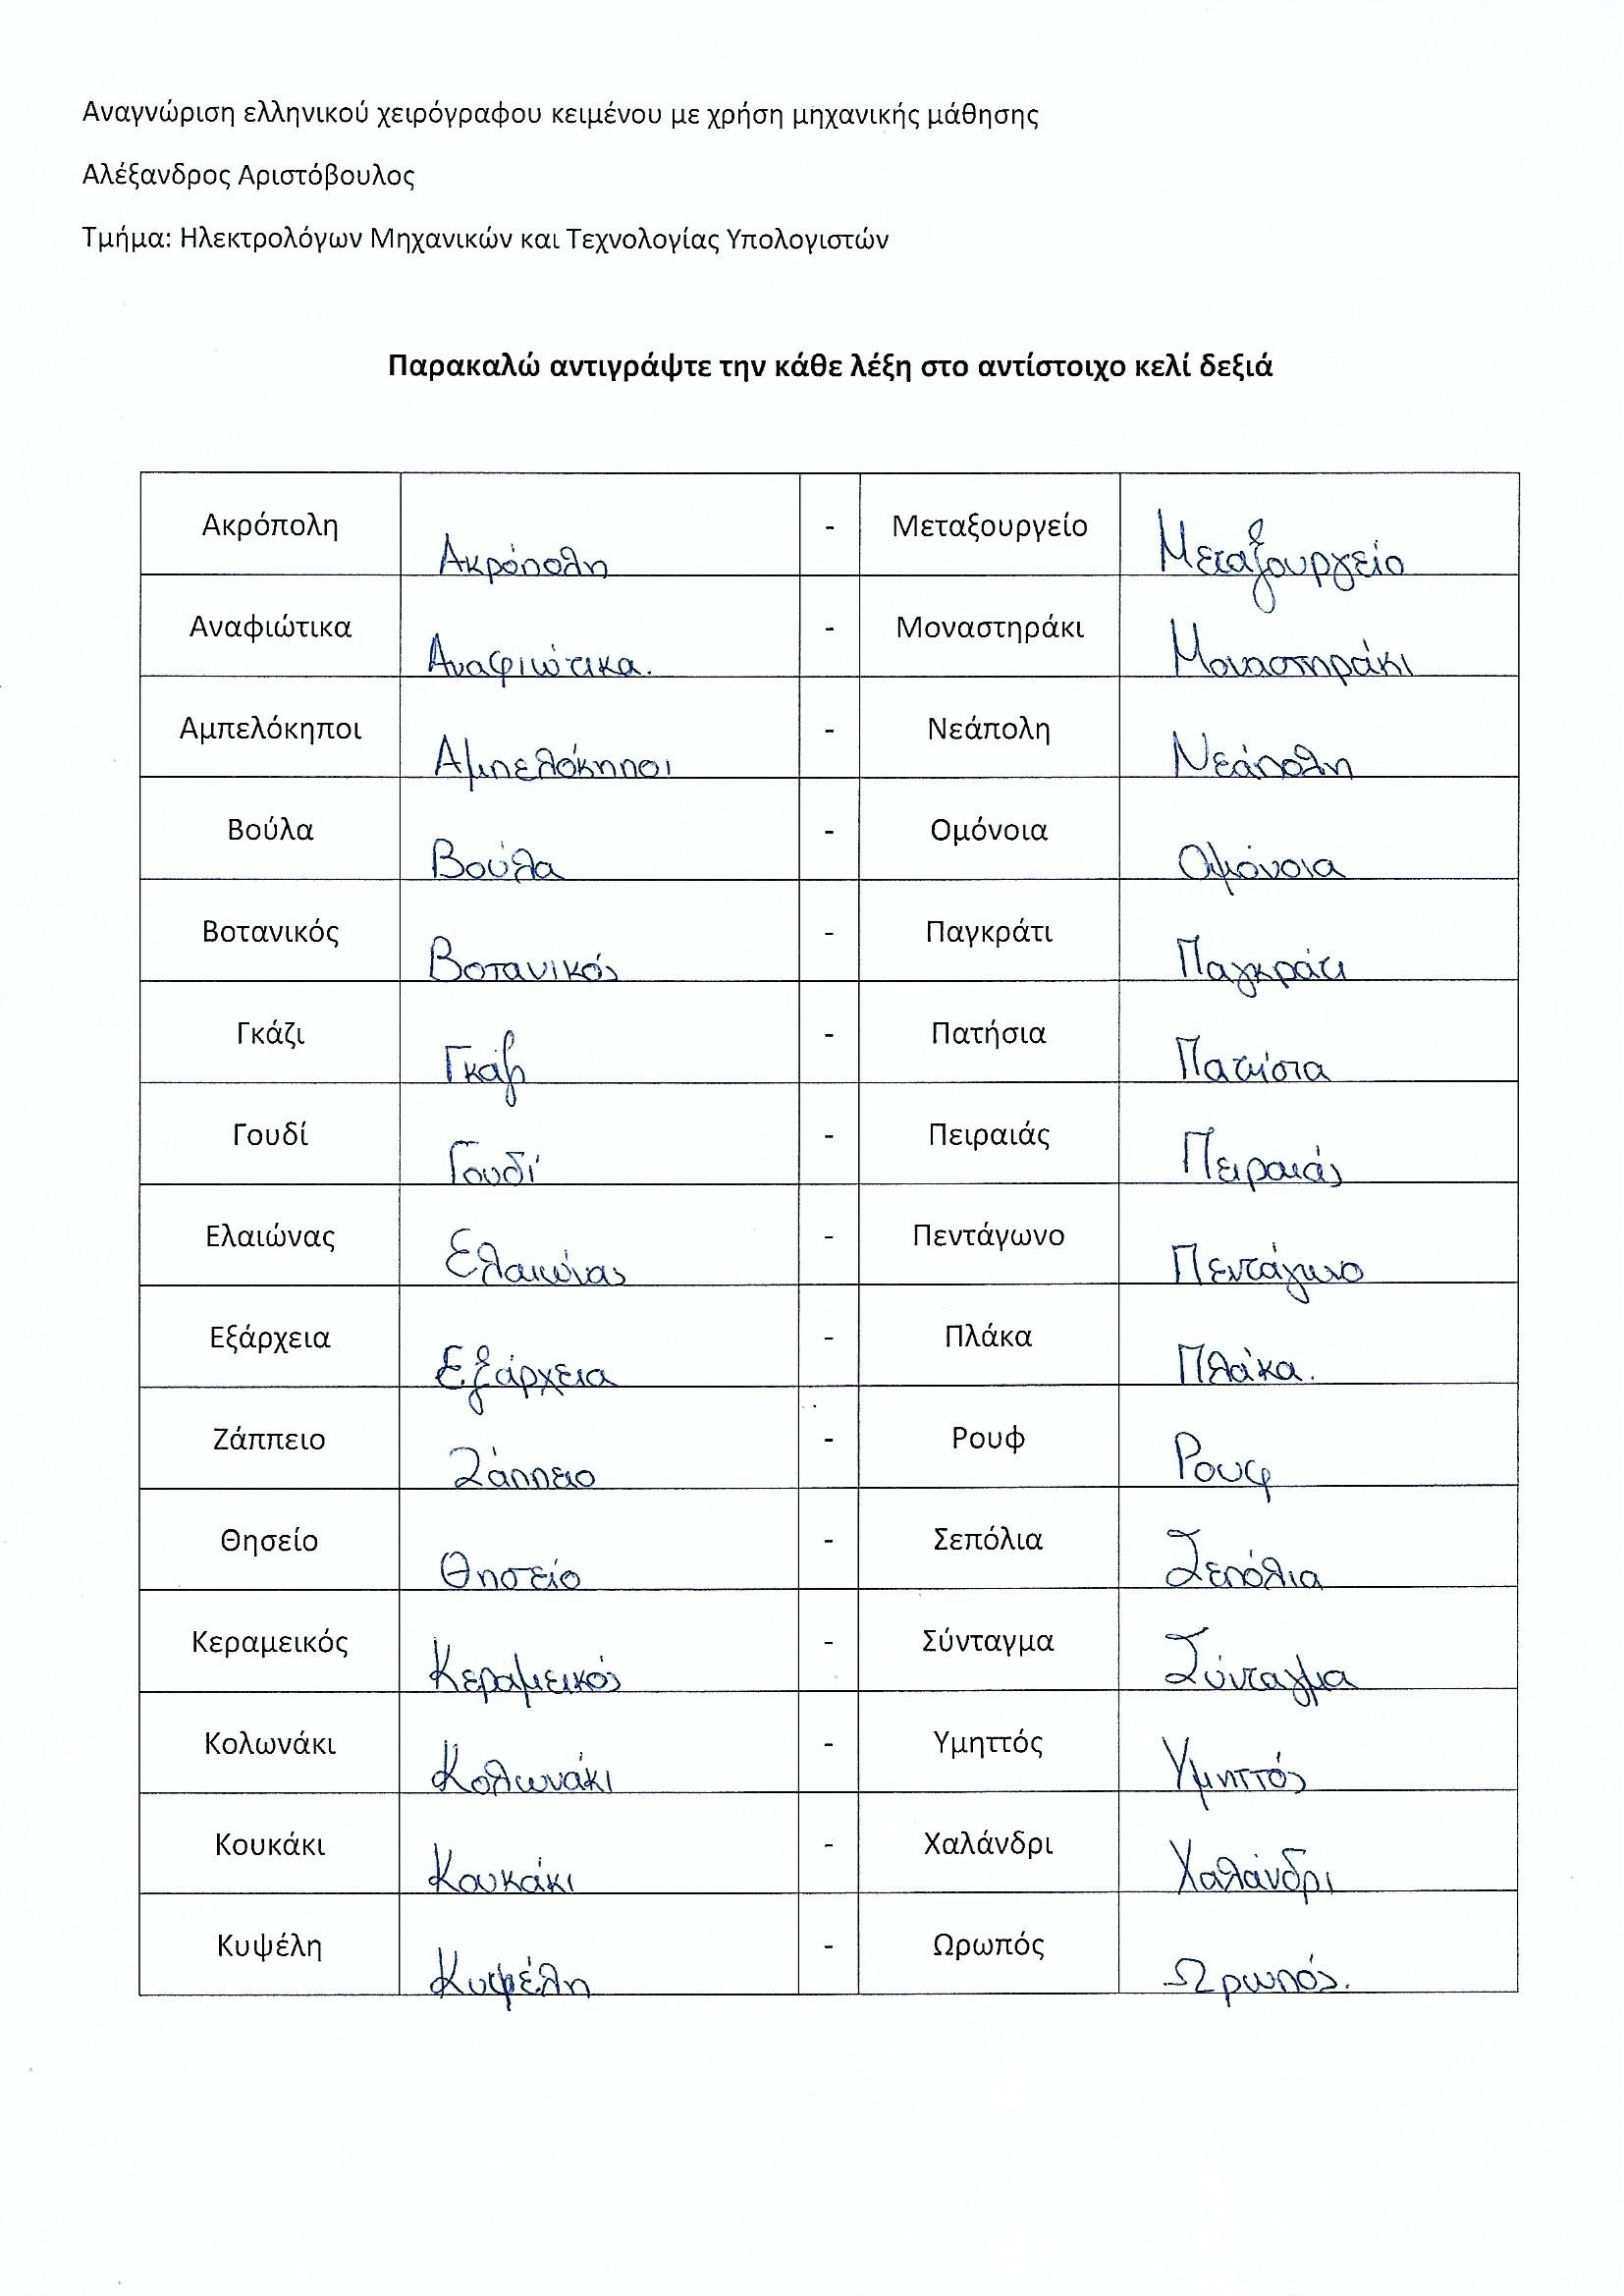 Αναγνώριση ελληνικού χειρόγραφου κειμένου με χρήση μηχανικής μάθησης
Αλέξανδρος Αριστόβουλος
Τμήμα: Ηλεκτρολόγων Μηχανικών και Τεχνολογίας Υπολογιστών
Παρακαλώ αντιγράψτε την κάθε λέξη στο αντίστοιχο κελί δεξιά
Ακρόπολη Ακρόπολη - Μεταξουργείο Μεταξουργείο
Αναφιώτικα Αναφιώτικα. - Μοναστηράκι Μοναστηράκι
Αμπελόκηποι Αμπελόκηποι - Νεάπολη Νεάπολη
Βούλα Βούλα - Ομόνοια Ομόνοια
Βοτανικός Βοτανικός - Παγκράτι Παγκράτι
Γκάζι Γκάζι - Πατήσια Πατήσια
Γουδί Γουδί - Πειραιάς Πειραιάς
Ελαιώνας Ελαιώνας - Πεντάγωνο Πεντάγωνο
Εξάρχεια Εξάρχεια - Πλάκα Πλάκα.
Ζάππειο Ζάππειο - Ρουφ Ρουφ
Θησείο Θησείο - Σεπόλια Σεπόλια
Κεραμεικός Κεραμεικός - Σύνταγμα Σύνταγμα
Κολωνάκι Κολωνάκι - Υμηττός Υμηττός
Κουκάκι Κουκάκι - Χαλάνδρι Χαλάνδρι
Κυψέλη Κυψέλη - Ωρωπός Ωρωπός.